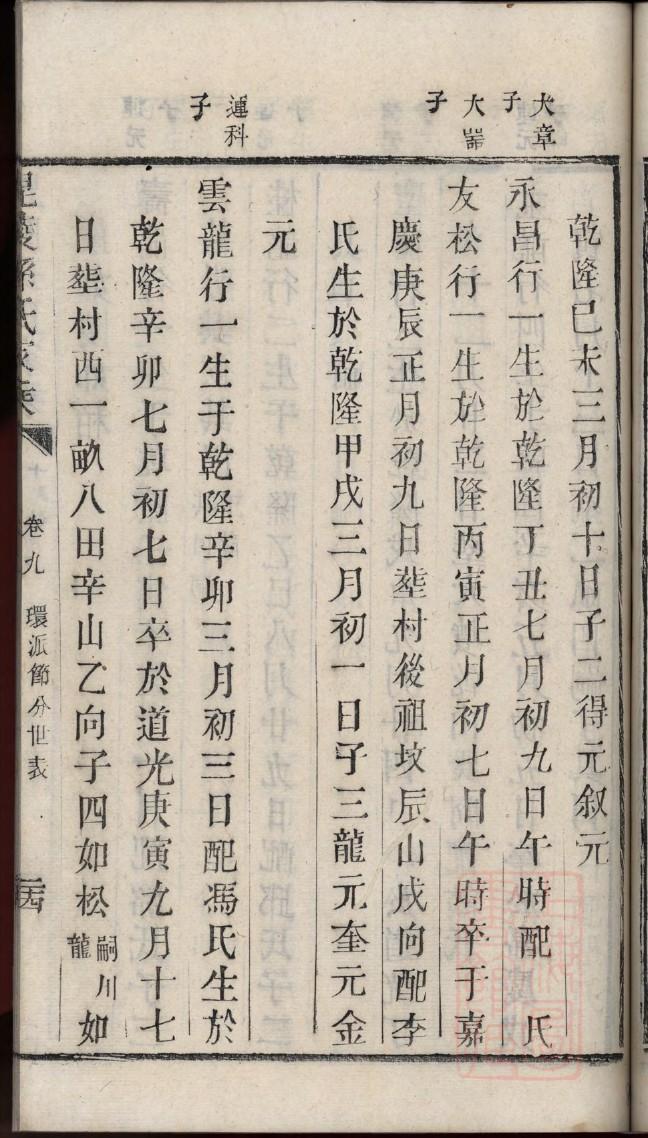 大章
子
大耑
子
運科
子
乾隆己未三月初十日子二得元叙元
永昌行一生於乾隆丁丑七月初九日午時配　氏
友松行一生於乾隆丙寅正月初七日午時卒于嘉
慶庚辰正月初九日塟村後祖坟辰山戌向配李
氏生於乾隆甲戌三月初一日子三龍元奎元金
元
雲龍行一生于乾隆辛卯三月初三日配馮氏生於
乾隆辛卯七月初七日卒於道光庚寅九月十七
日塟村西一畝八田辛山乙向子四如松嗣川龍如
毘陵孫氏家乘
卷九　環派節分世表